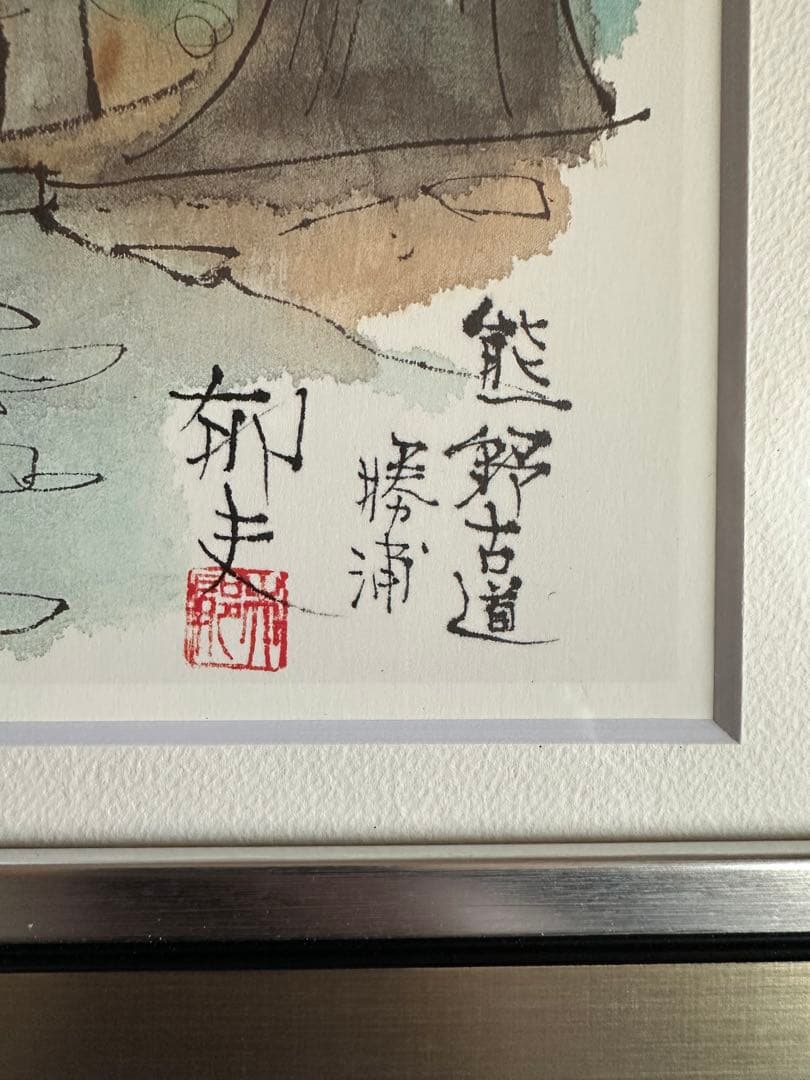 熊野古道
勝浦
郁夫